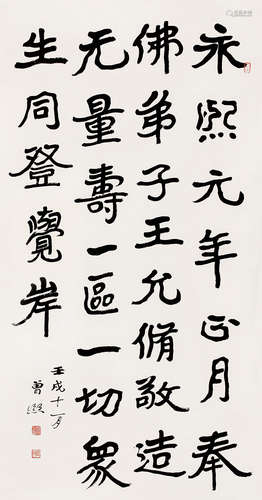 永熙元年正月奉
佛弟子王允脩敬造
无量壽一區一切眾
生同登覺岸
壬戌十二月
曾熙